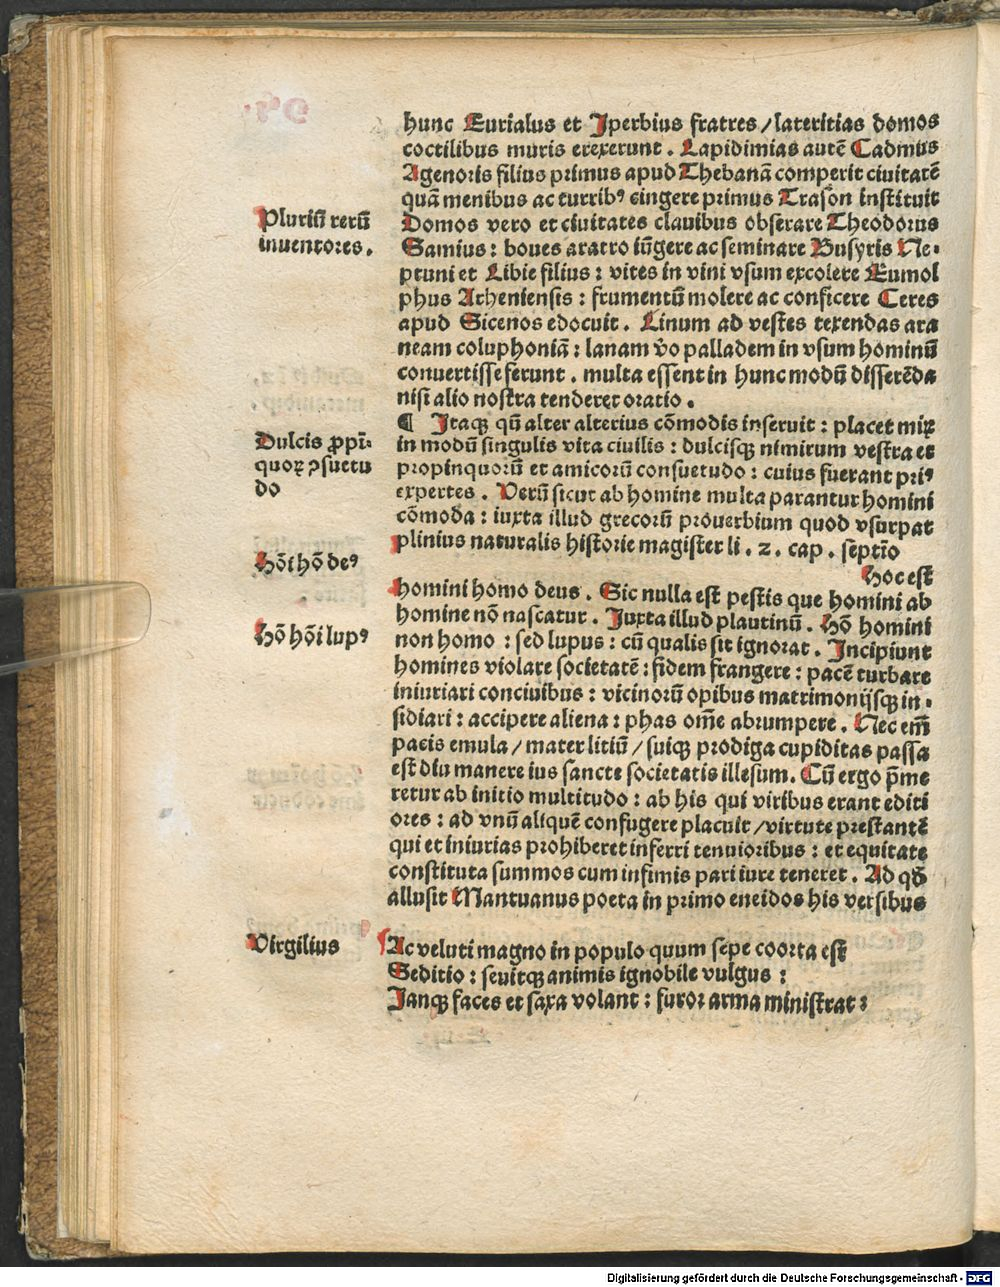 hunc Eurialus et Iperbius fratres / lateritias domos
coctilibus muris erexerunt . Lapidimias autē Cadmus
Agenoris filius primus apud Thebanā comperit ciuitatē
quā menibus ac turribꝰ cingere primus Trason instituit
Pluriū rerū
inuentores .
Domos vero et ciuitates clauibus obserare Theodorus
Samius : boues aratro iūgere ac seminare Busyris Ne-
ptuni et Libie filius : vites in vini vsum excolere Eumol
phus Atheniensis : frumentū molere ac conficere Ceres
apud Sicenos edocuit . Linum ad vestes texendas ara
neam coluphoniā : lanam v̄o palladem in vsum hominū
conuertisse ferunt . multa essent in hunc modū disserēda
nisi alio nostra tenderet oratio .
¶ Itaqꝫ qū alter alterius cōmodis inseruit : placet miꝝ
Dulcis ꝓpī-
quoꝝ ꝯsuetu
do
in modū singulis vita ciuilis : dulcisqꝫ nimirum vestra et
propinquorū et amicorū consuetudo : cuius fuerant priꝰ
expertes . Verū sicut ab homine multa parantur homini
cōmoda : iuxta illud grecorū prouerbium quod vsurpat
plinius naturalis historie magister li . 2 . cap . septīo
Hōi hō deꝰ
hoc est
homini homo deus . Sic nulla est pestis que homini ab
homine nō nascatur . Iuxta illud plautinū . Hō homini
Hō hōi lupꝰ
non homo : sed lupus : cū qualis sit ignorat . Incipiunt
homines violare societatē : fidem frangere : pacē turbare
iniuriari conciuibus : vicinorū opibus matrimonijsqꝫ in-
sidiari : accipere aliena : phas om̄e abrumpere . Nec em̄
pacis emula / mater litiū / suiqꝫ prodiga cupiditas passa
est diu manere ius sancte societatis illesum . Cū ergo p̄me
retur ab initio multitudo : ab his qui viribus erant editi
ores : ad vnū aliquē confugere placuit / virtute prestantē
qui et iniurias prohiberet inferri tenuioribus : et equitate
constituta summos cum infimis pari iure teneret . Ad qđ
allusit Mantuanus poeta in primo eneidos his versibus
Virgilius
Ac veluti magno in populo quum sepe coorta est
Seditio : seuitqꝫ animis ignobile vulgus :
Ianqꝫ faces et saxa volant : furor arma ministrat :
Digitalisierung gefördert durch die Deutsche Forschungsgemeinschaft - DFG